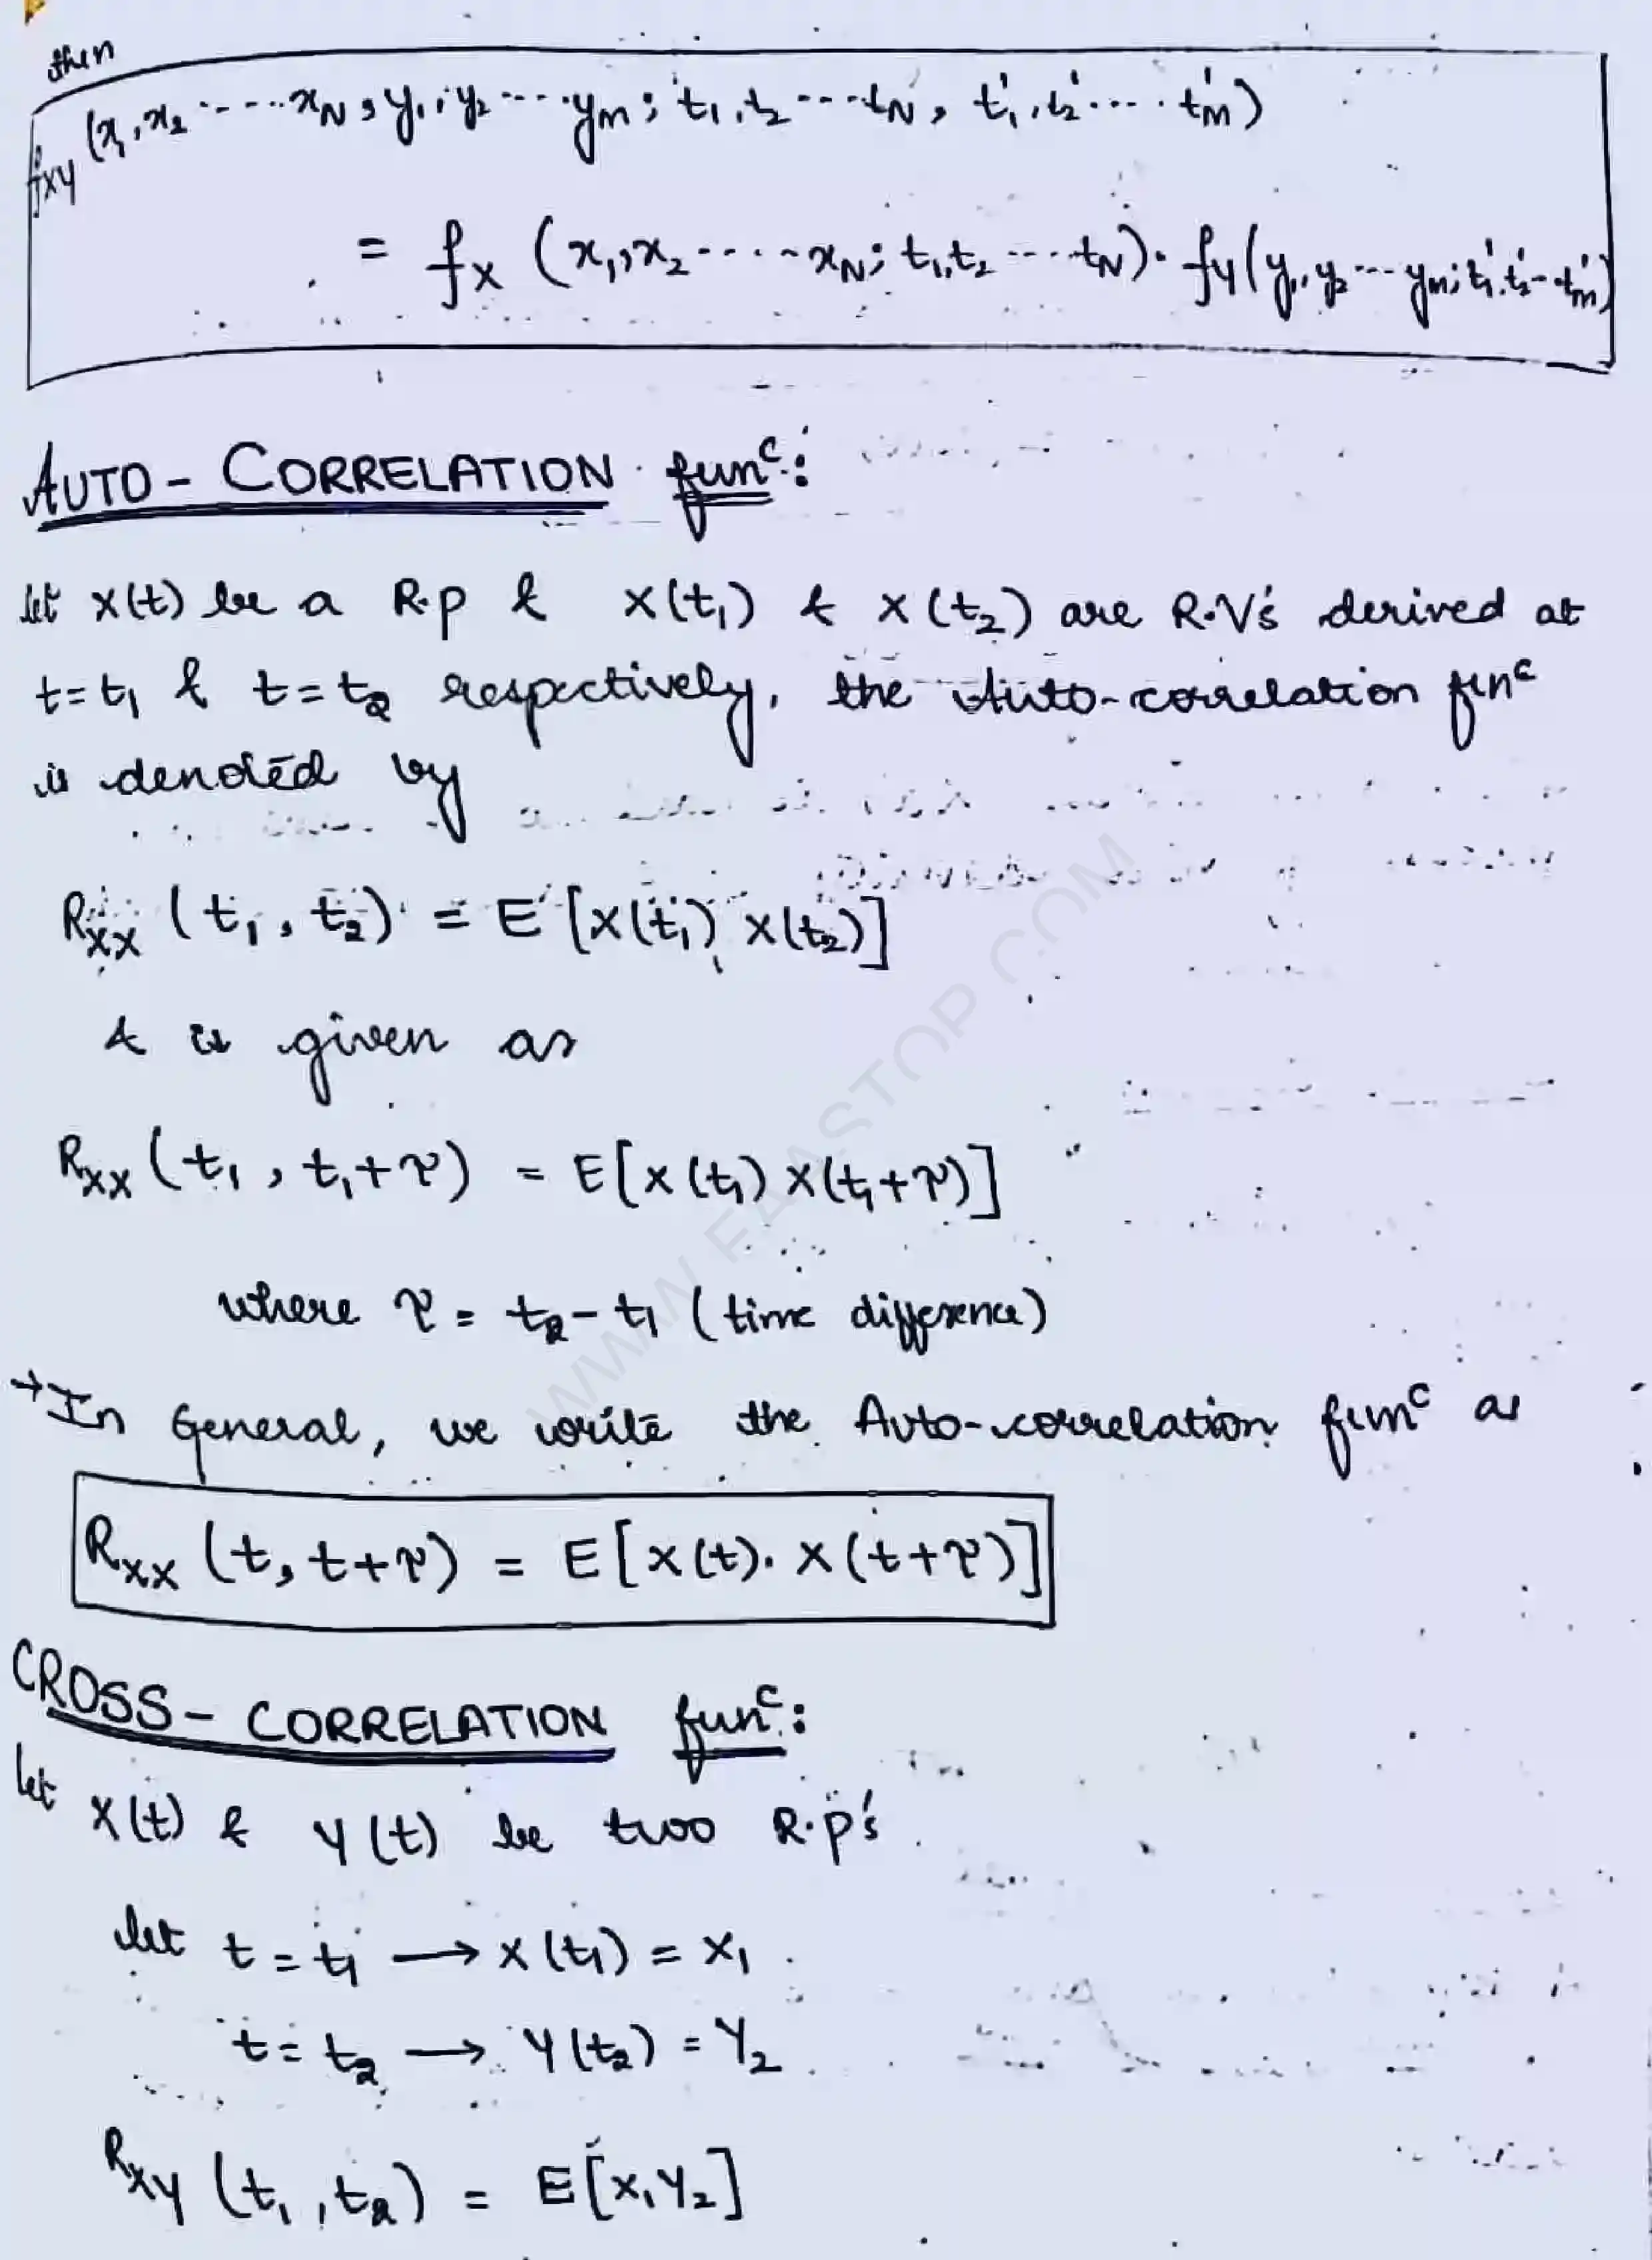 then
fxy (x1, x2 ----- xN, y1, y2 ---- ym; t1, t2 --- tN, t1', t2' ---- tm')
= fx (x1, x2 ----- xN; t1, t2 ---- tN) . fy (y1, y2 --- ym; t1', t2' -- tm')
AUTO - CORRELATION funᶜ:
let X(t) be a R.p & X(t1) & X(t2) are R.V's derived at
t=t1 & t=t2 respectively, the Auto-correlation funᶜ
is denoted by
Rxx (t1, t2) = E [X(t1) X(t2)]
& is given as
Rxx (t1, t1+τ) = E[X(t1) X(t1+τ)]
where τ = t2 - t1 (time difference)
→ In General, we write the Auto-correlation funᶜ as
Rxx (t, t+τ) = E[X(t). X(t+τ)]
CROSS - CORRELATION funᶜ:
let X(t) & Y(t) be two R.p's
let t = t1 → X(t1) = X1
t = t2 → Y(t2) = Y2
Rxy (t1, t2) = E[X1Y2]